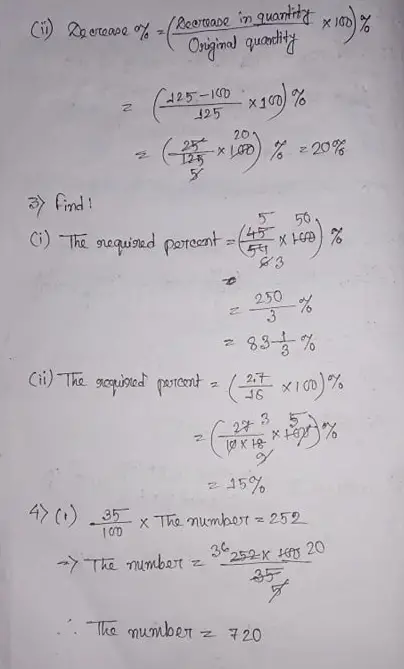 (ii) Decrease % = (Decrease in quantity / Original quantity × 100) %
= (125-100 / 125 × 100) %
= (25 / 125 5 × 100 20) % = 20%
3) Find!
(i) The required percent = (45 5 / 54 6 3 × 100 50) %
= 250 / 3 %
= 83 1/3 %
(ii) The required percent = (2.7 / 18 × 100) %
= (27 3 / 10 × 18 2 × 100 5) %
= 15%
4) (i) 35 / 100 × The number = 252
=> The number = 36 252 × 100 20 / 35 5
∴ The number = 720